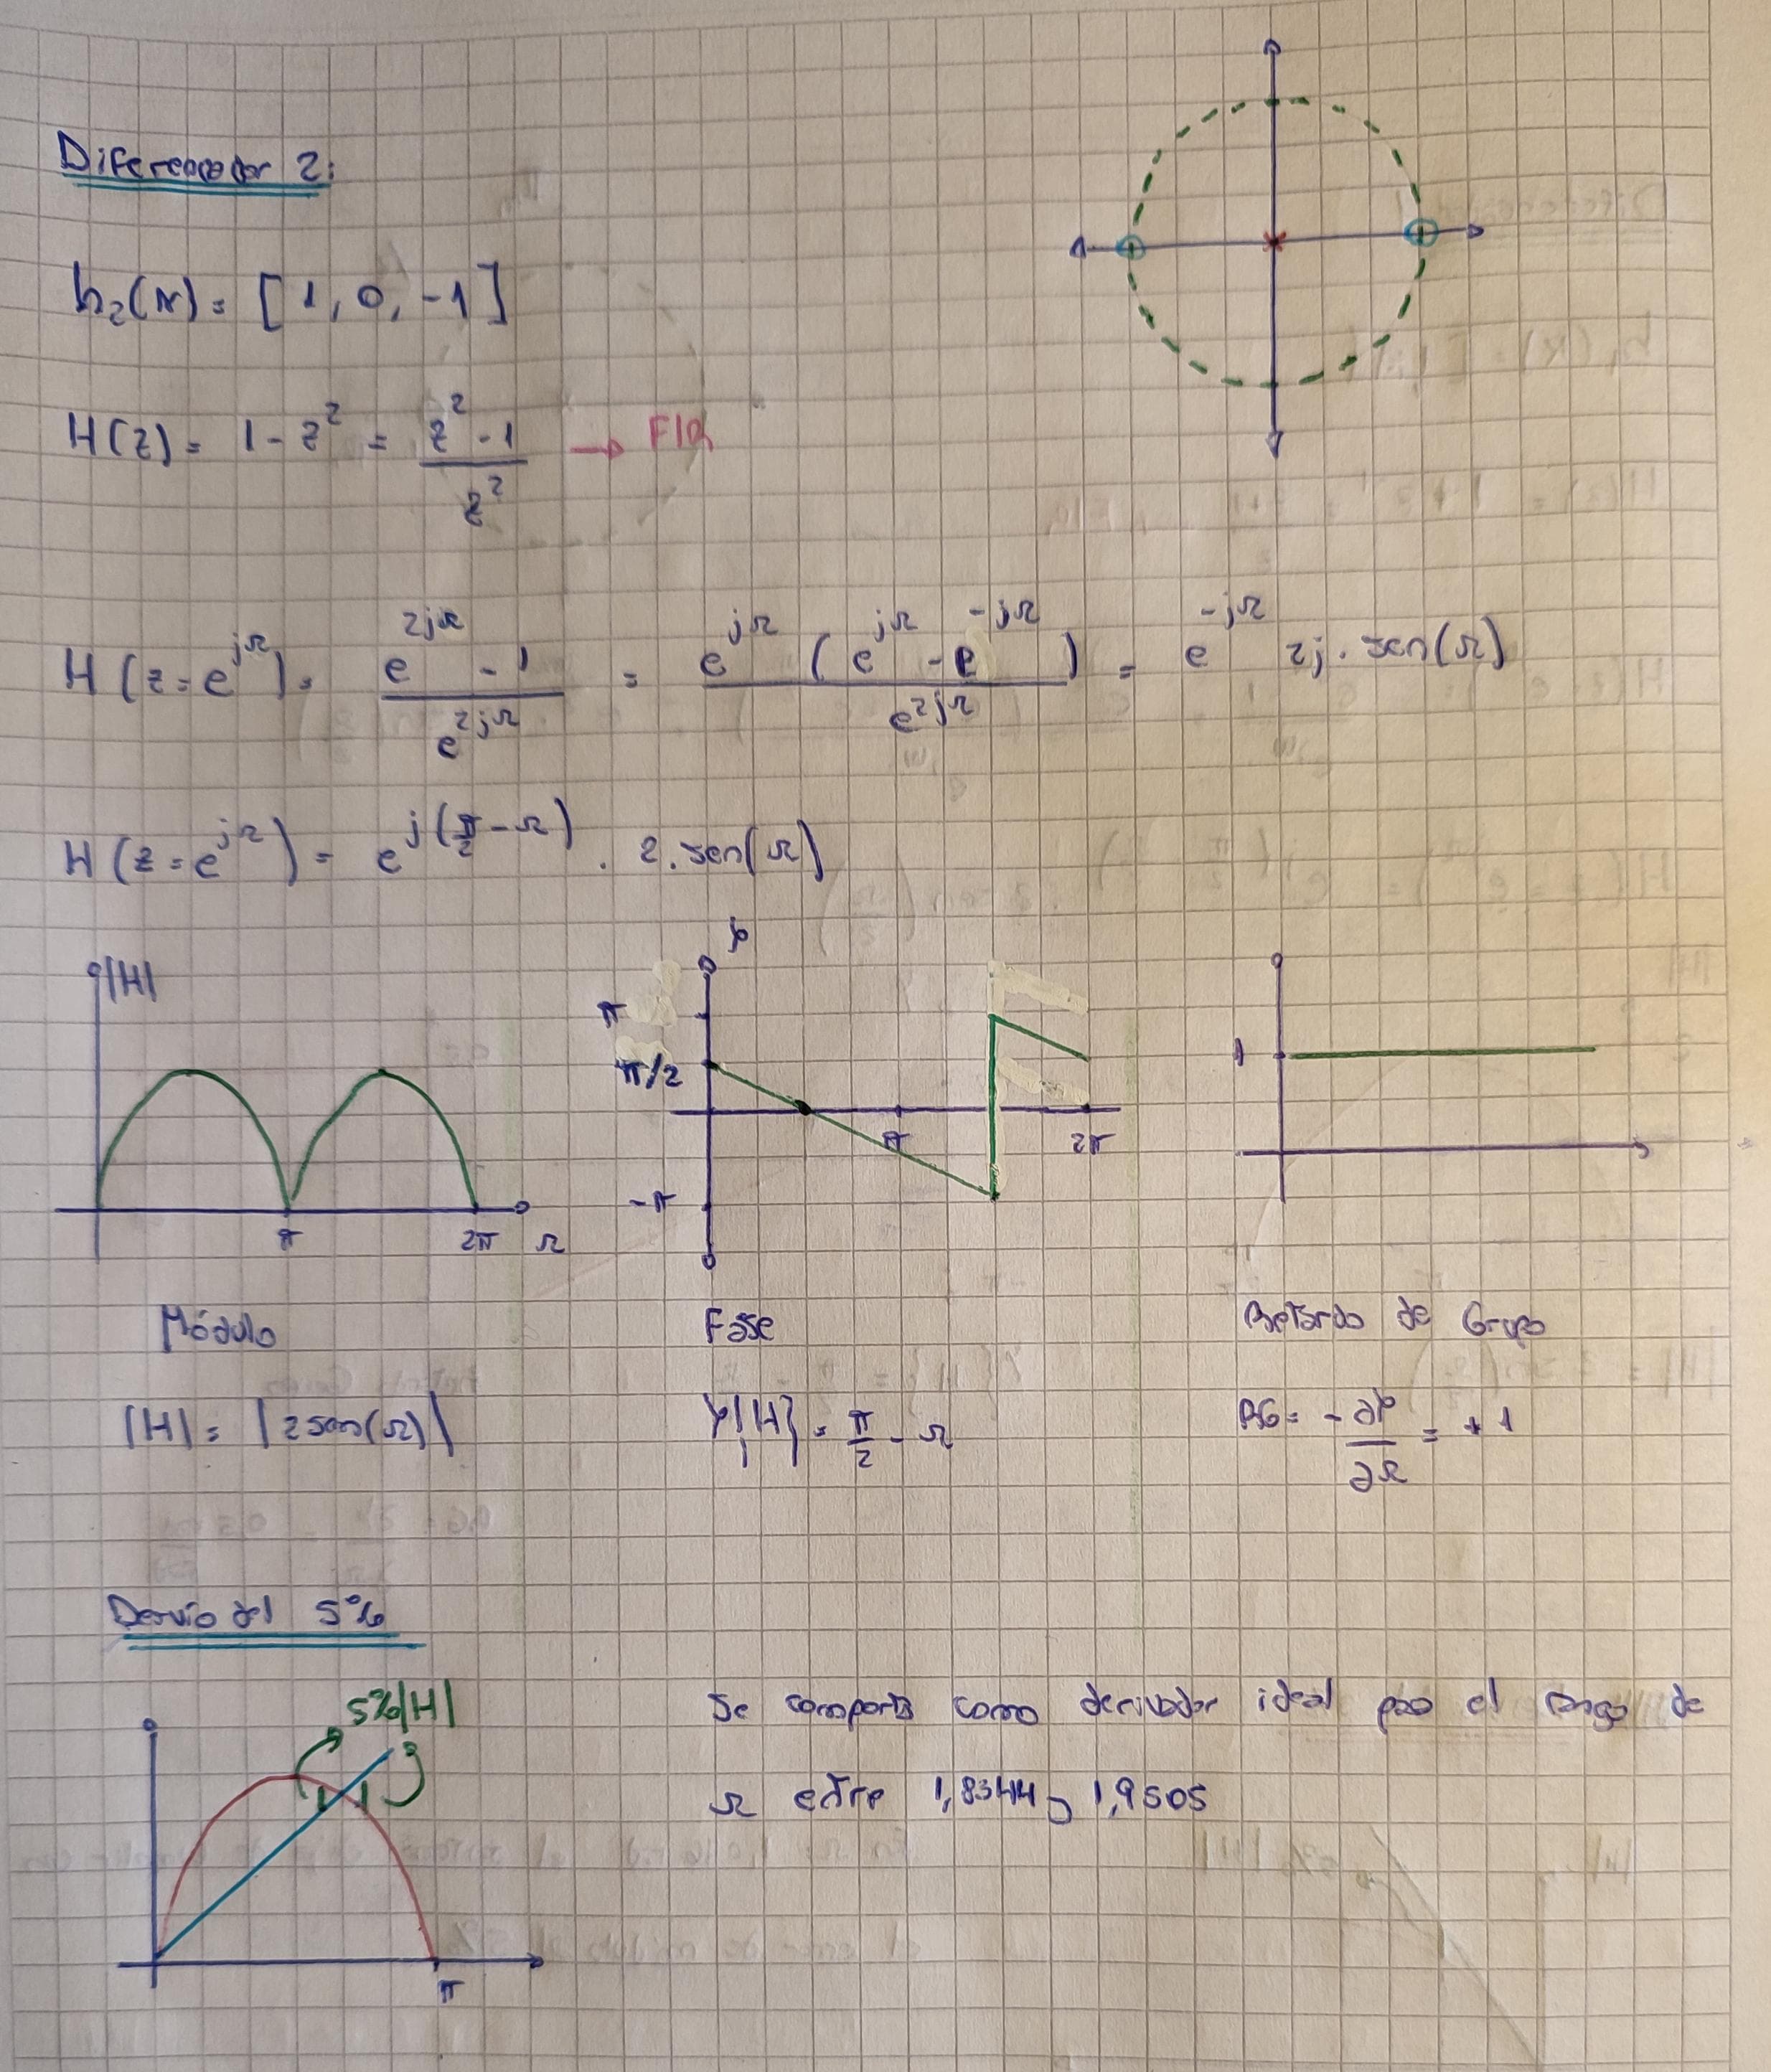 Diferenciador 2:
h₂(n) = [1, 0, -1]
H(z) = 1 - z² = (z² - 1)/z² → FIR
H(z=e^{jΩ}) = (e^{2jΩ} - 1)/e^{2jΩ} = e^{jΩ}(e^{jΩ} - e^{-jΩ})/e^{2jΩ} = e^{-jΩ} 2j . sen(Ω)
H(z=e^{jΩ}) = e^{j(π/2 - Ω)} . 2 . sen(Ω)
|H|
π 2π Ω
φ
π
π/2
π 2π
-π
1
Módulo Fase Retardo de Grupo
|H| = |2sen(Ω)| φ{H} = π/2 - Ω RG = -∂φ/∂Ω = +1
Desvío del 5%
5%|H|
π
Se comporta como derivador ideal para el rango de
Ω entre 1,8344 y 1,9505